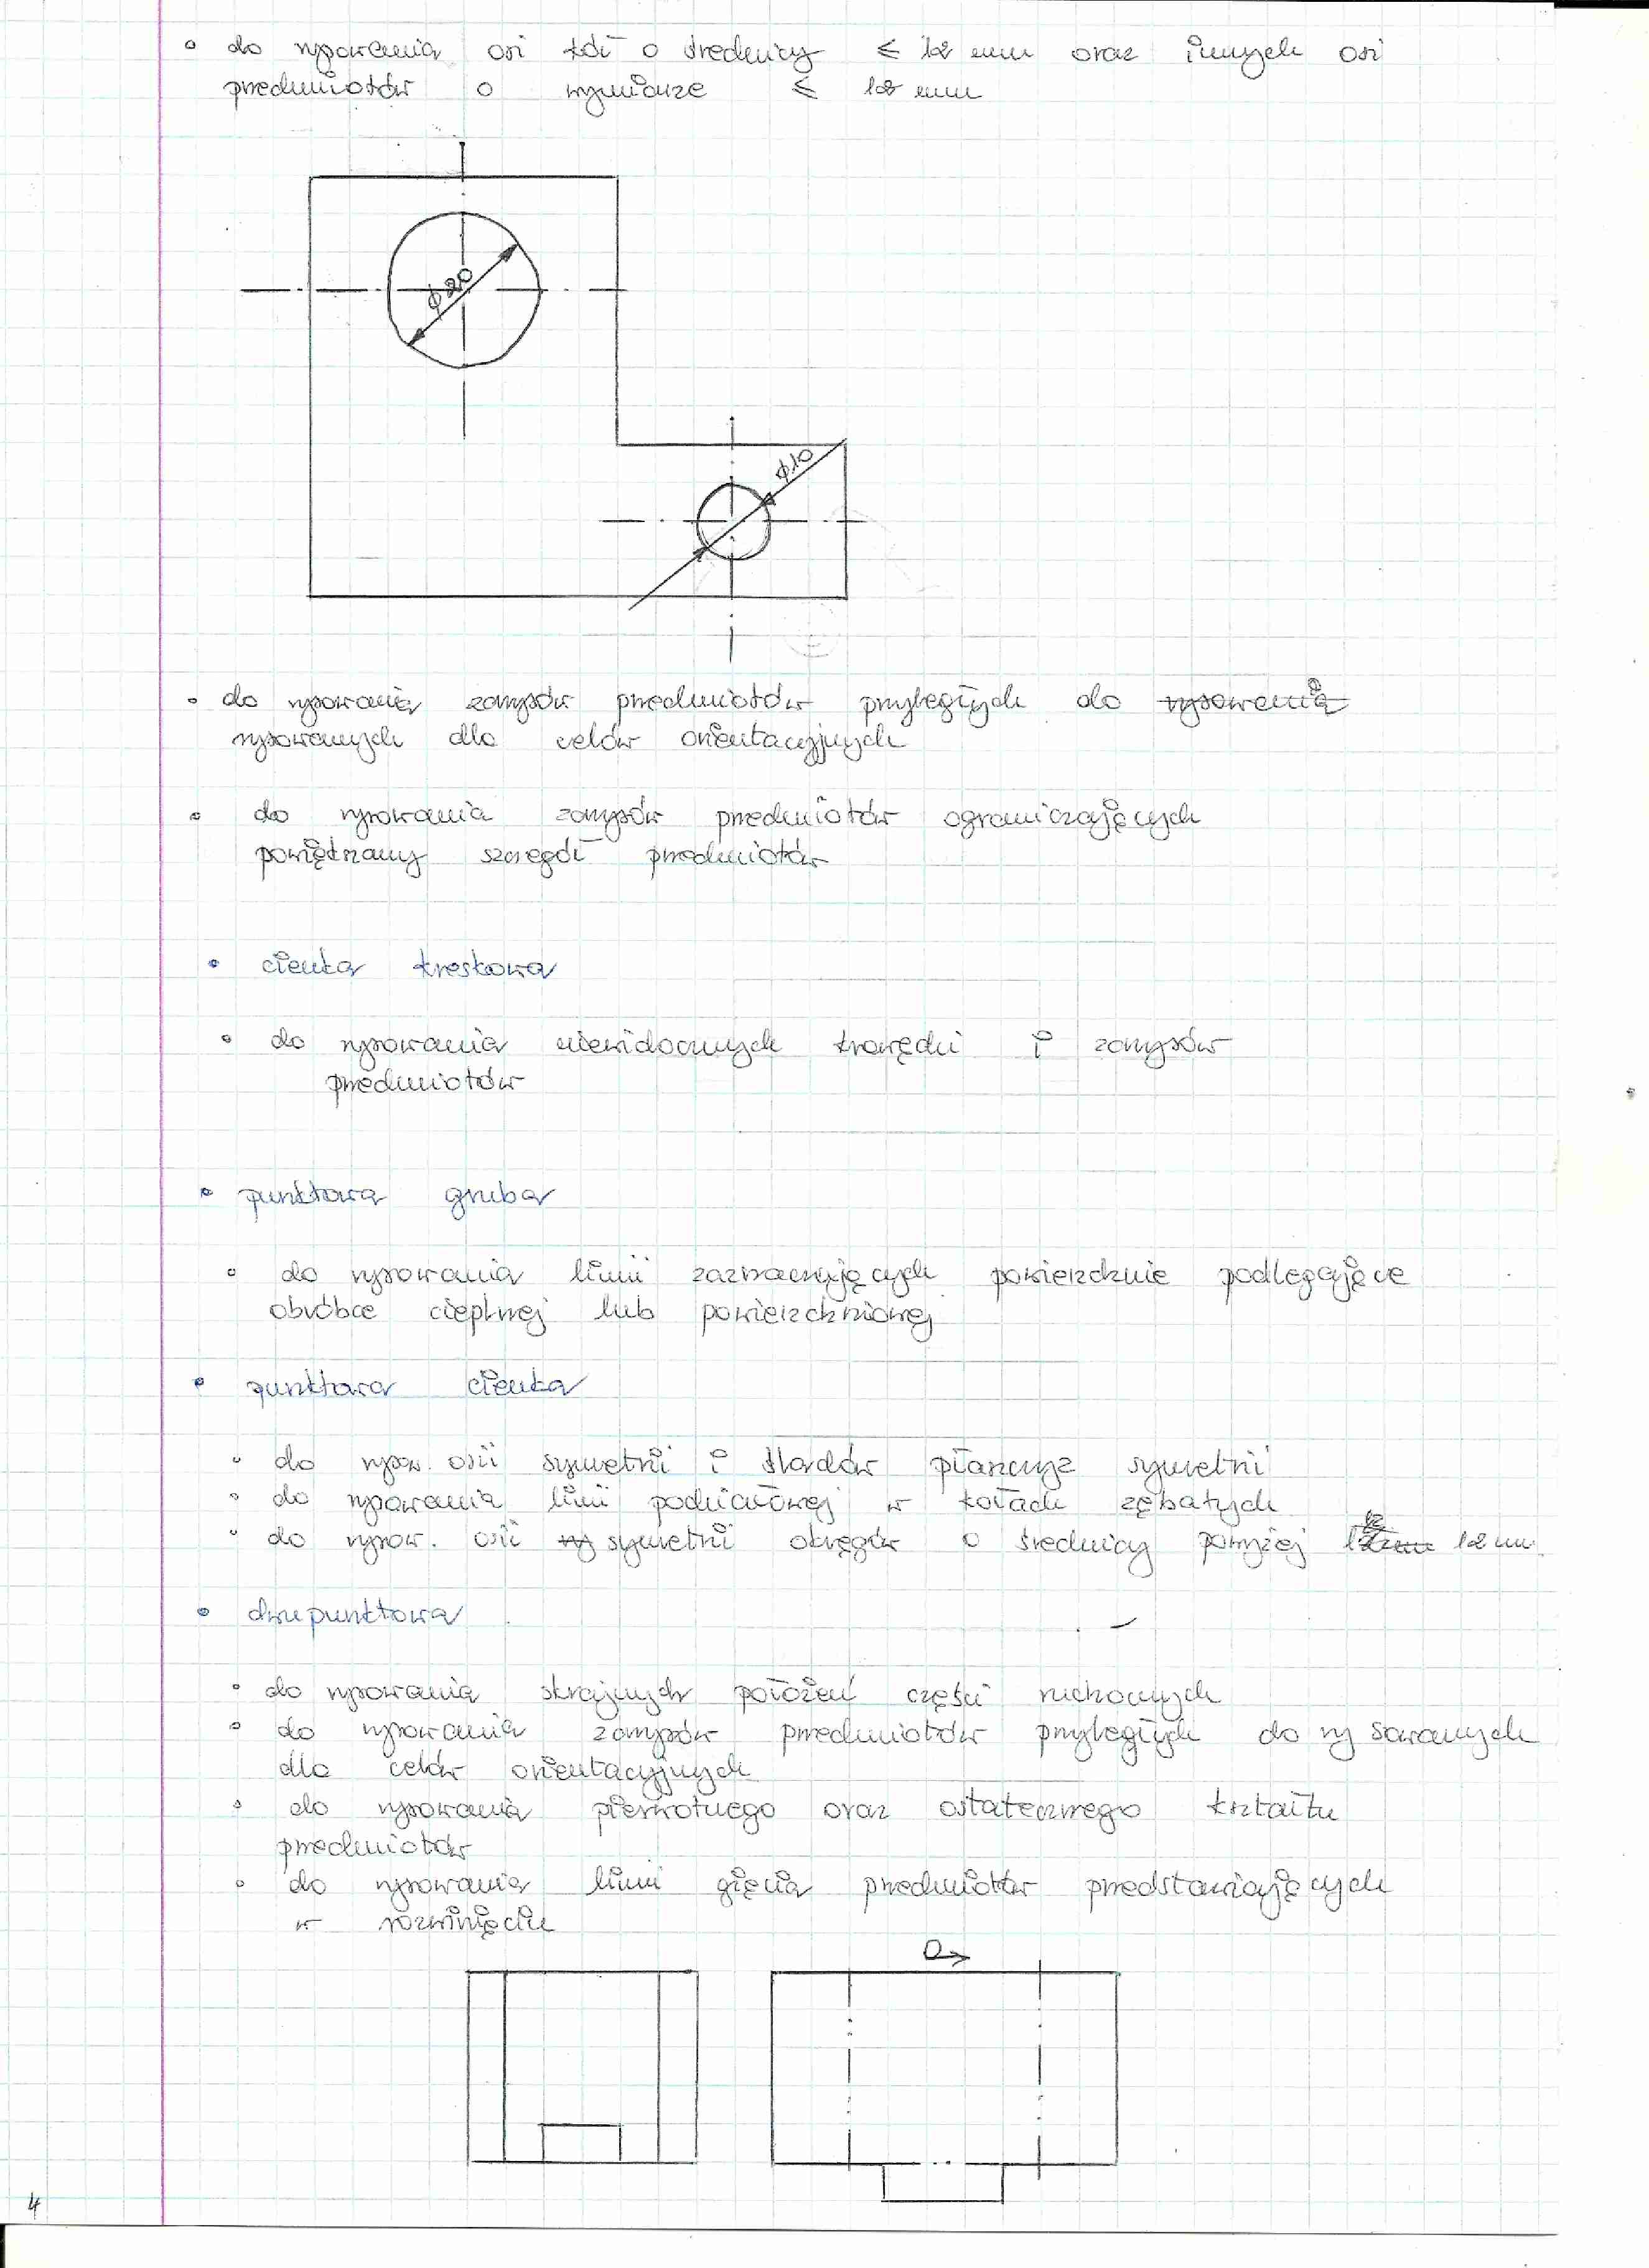 do rysowania osi kół o średnicy ≤ 12 mm oraz innych osi
przedmiotów o wymiarze ≤ 12 mm
ϕ20
ϕ10
do rysowania zarysów przedmiotów przyległych do rysowania
rysowanych dla celów orientacyjnych
do rysowania zarysów przedmiotów ograniczających
powiętrzany szczegół przedmiotów
cienka kreskowa
do rysowania niewidocznych krawędzi i zarysów
przedmiotów
punktowa gruba
do rysowania linii zaznaczających powierzchnie podlegające
obróbce cieplnej lub powierzchniowej
punktowa cienka
do rysow. osii symetrii i śladów płaszczyz symetrii
do rysowania linii podziałowej w kołach zębatych
do rysow. osii symetrii okręgów o średnicy poniżej 12 mm.
dwupunktowa
do rysowania skrajnych położeń części ruchomych
do rysowania zarysów przedmiotów przyległych do rysowanych
dla celów orientacyjnych
do rysowania pierwotnego oraz ostatecznego kształtu
przedmiotów
do rysowania linii gięcia przedmiotów przedstawiających
w rozwinięciu
4